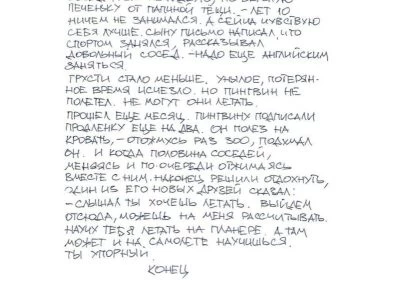 ПЕЧЕНЬКУ ОТ ПАПИНОЙ ТЕЩИ. – ЛЕТ 10
НИЧЕМ НЕ ЗАНИМАЛСЯ. А СЕЙЧАС ЧУВСТВУЮ
СЕБЯ ЛУЧШЕ. СЫНУ ПИСЬМО НАПИСАЛ, ЧТО
СПОРТОМ ЗАНЯЛСЯ, РАССКАЗЫВАЛ
ДОВОЛЬНЫЙ СОСЕД. – НАДО ЕЩЕ АНГЛИЙСКИМ
ЗАНЯТЬСЯ.
ГРУСТИ СТАЛО МЕНЬШЕ. УНЫЛОЕ, ПОТЕРЯН-
НОЕ ВРЕМЯ ИСЧЕЗЛО. НО ПИНГВИН НЕ
ПОЛЕТЕЛ. НЕ МОГУТ ОНИ ЛЕТАТЬ.
ПРОШЕЛ ЕЩЕ МЕСЯЦ. ПИНГВИНУ ПОДПИСАЛИ
ПРОДЛЕНКУ ЕЩЕ НА ДВА. ОН ПОЛЕЗ НА
КРОВАТЬ, – ОТОЖМУСЬ РАЗ 300, ПОДУМАЛ
ОН. И КОГДА ПОЛОВИНА СОСЕДЕЙ,
МЕНЯЯСЬ И ПО ОЧЕРЕДИ ОТЖИМАЯСЬ
ВМЕСТЕ С НИМ. НАКОНЕЦ РЕШИЛИ ОТДОХНУТЬ,
ОДИН ИЗ ЕГО НОВЫХ ДРУЗЕЙ СКАЗАЛ:
– СЛЫШАЛ ТЫ ХОЧЕШЬ ЛЕТАТЬ. ВЫЙДЕМ
ОТСЮДА, МОЖЕШЬ НА МЕНЯ РАССЧИТЫВАТЬ.
НАУЧУ ТЕБЯ ЛЕТАТЬ НА ПЛАНЕРЕ. А ТАМ
МОЖЕТ И НА САМОЛЕТЕ НАУЧИШЬСЯ.
ТЫ УПОРНЫЙ.
КОНЕЦ